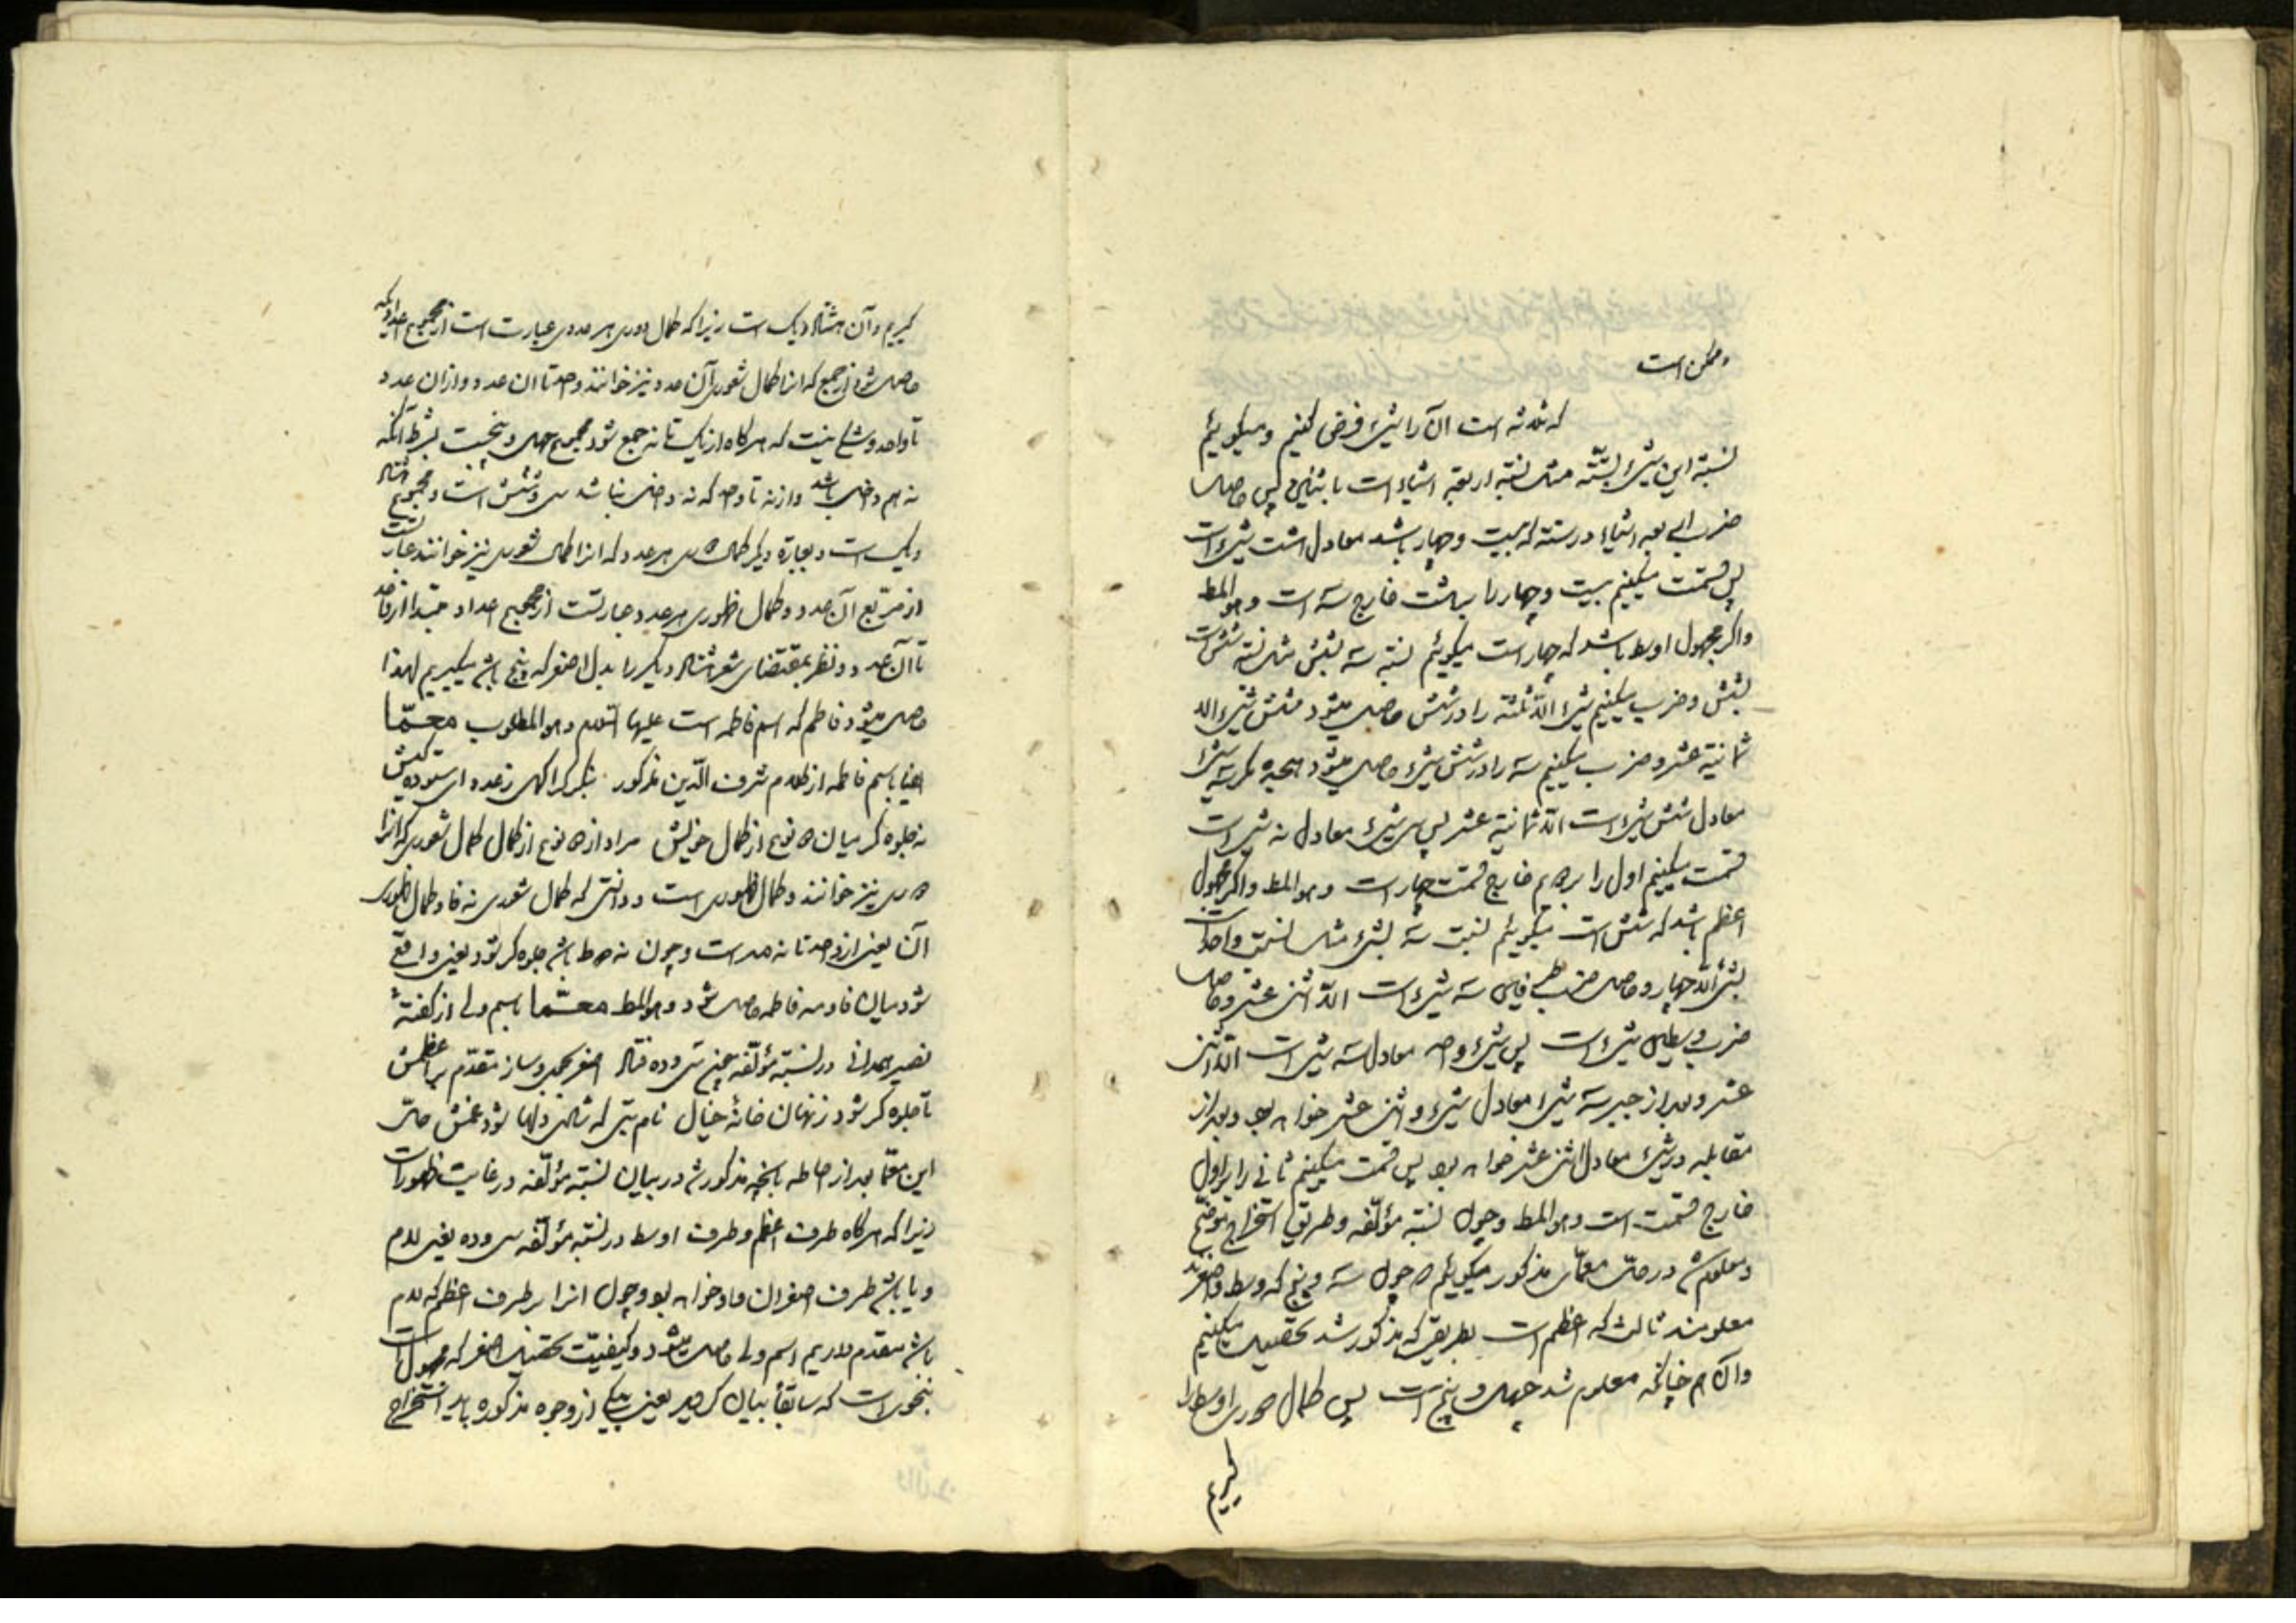 ممکن است
که ثلاثه است آن را شیء فرض کنیم و میگوییم
نسبة این شیء بستّه مثل نسبة اربعة اشیاء است باثنین پس حاصل
ضرب اربعه اشیاء در سته که بیست و چهار باشد معادل شیء است
پس قسمت میکنیم بیست و چهار را بهشت خارج سه است و هو المط
واکر مجهول اوسط باشد که چهار است میکوئیم نسبة سه بشش مثل نسبة شیء است
بشش و ضرب میکنیم شیء الا ثلثه را در شش حاصل میشود شش شیء الا
ثمانیة عشر و ضرب میکنیم سه را در شش شیء حاصل میشود هیجده
معادل شش شیء است الا ثمانیة عشر پس سی شیء معادل نه شیء است
قسمت میکنیم اول را بر خارج قسمت چهار است و هو المط واکر مجهول
اعظم باشد که شش است میکوییم نسبت سه بشیء مثل نسبت واحد است
بشیء الا چهار و حاصل ضرب طرفین سه شیء است الا اثنی عشر و حاصل
ضرب وسطین شیء است پس شیء واحد معادل سه شیء است الا اثنی
عشر و بعد از جبر سه شیء معادل شیء و اثنی عشر خواهد بود و بعد از
مقابله دو شیء معادل اثنی عشر خواهد بود پس قسمت میکنیم ثانی را بر اول
خارج قسمت است و هو المط و چون نسبة مؤلفه و طریق استخراج توضیح
و معلوم شد در حل معمّای مذکور میکوییم چون سه و پنج که وسط و اصغرند
معلومند ثالث که اعظم است بطریقی که مذکور شد تحصیل میکنیم
وآن هم چنانکه معلوم شد چهل و پنج است پس کمال صوری اوسط را
کیریم
کیریم و آن هشتاد و یک است زیرا که کمال هر عددی عبارت است از مجموع اعدادیکه
حاصل شود از جمع که انرا کمال شعوری آن عدد نیز خوانند واحد تا ان عدد و از ان عدد
تا واحد و شک نیست که هرکاه از یک تا نه جمع شود مجموع چهل و پنجست بشرط آنکه
نه هم داخل باشد و از نه تا واحد که نه داخل نباشد سی و شش است و مجموع هشتاد
و یک است و بعبارة دیکر کمال هر عدد که انرا کمال شعوری نیز خوانند عبارتست
از مربّع آن عدد و کمال ظهوری هر عدد عبارتست از مجموع اعداد مبتدا از واحد
تا آن عدد و نظر بمقتضای شعر هشتاد و یکرا بدل اصغر که پنج باشد میکیریم لهذا
حاصل میشود فاطم که اسم فاطمه است علیها السلام و هو المطلوب معمّا
ایضا باسم فاطمه از کلام شرف الدین مذکور بنکر کر اکهی ز عدد ای ستوده کیش
نه جلوه کر میان نوع از کمال خویش مراد از نوع از کمال کمال شعوری که انرا
نیز خوانند و کمال ظهوری است و دانستی که کمال شعوری نه فا و کمال ظهوری
آن یعنی از واحد تا نه مه است و چون نه طا باشد جلوه کر شود یعنی واقع
شود میان فا و مه فاطمه حاصل شود و هو المط معمّا باسم ولی از کفتهٔ
نصیر همدانی در نسبة مؤلّفه چنین سی و ده فتاد اصغر بجوی و ساز مقدم بر اعظمش
تا جلوه کر شود ز نهان خانهٔ خیال نام بتی که شادی دلها بود غمش حلّ
این معمّا بعد از احاطه بانچه مذکور شد در بیان نسبة مؤلّفه در غایت ظهور است
زیرا که هرکاه طرف اعظم و طرف اوسط در نسبة مؤلّفه سی و ده یعنی لام
و یا باشد طرف اصغر ان واو خواهد بود و چون انرا بر طرف اعظم که لام
باشد مقدم داریم اسم ولی حاصل میشود و کیفیّت تحصیل اصغر که مجهول است
بنحویست که سابقاً بیان کردید یعنی بیکی از وجوه مذکوره باید استخراج